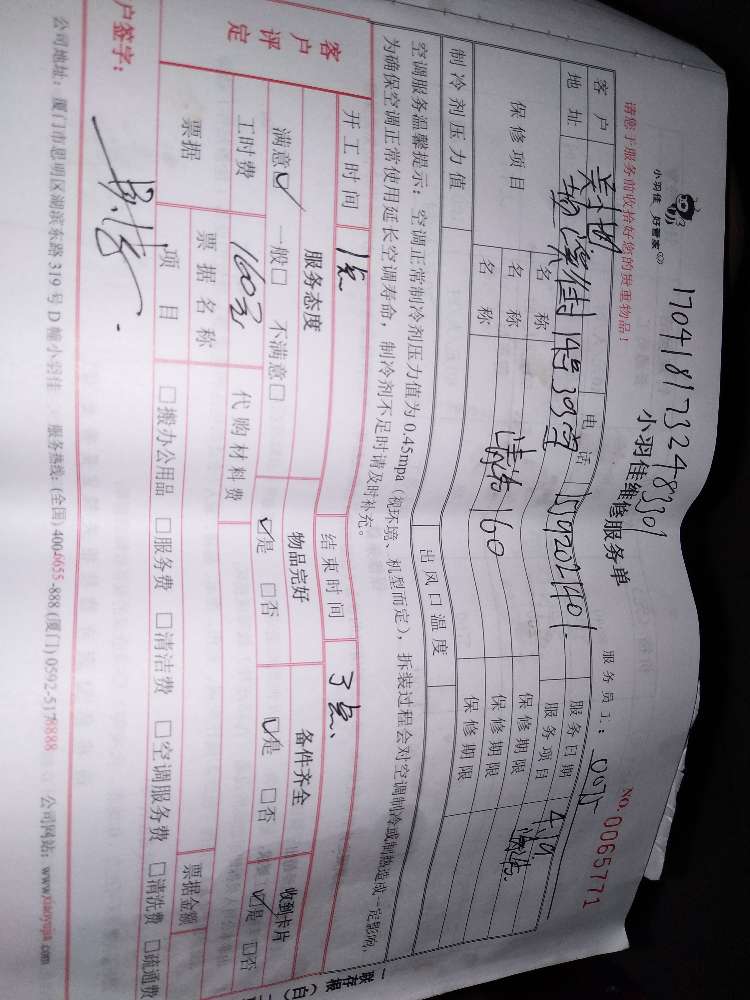 请您于服务前收拾好您的贵重物品！
小羽佳 好管家
17041817232483301
小羽佳维修服务单
NO.0065771
服务员工：
客户 电话 服务日期
地址 14号 服务项目 清洁
保修项目 名称 保修期限
名称 清洁160 保修期限
名称 保修期限
制冷剂压力值 出风口温度
空调服务温馨提示：空调正常制冷剂压力值为0.45mpa（视环境、机型而定），拆装过程会对空调制冷或制热造成一定影响，
为确保空调正常使用延长空调寿命，制冷剂不足时请及时补充。
开工时间 1点 结束时间 3点
客户评定 服务态度 物品完好 备件齐全 收到卡片
满意☑ 一般□ 不满意□ ☑是 □否 ☑是 □否 ☑是 □否
工时费 160元 代购材料费
票据 票据名称 票据金额
项目 □搬办公用品 □服务费 □清洁费 □空调服务费 □清洗费 □疏通费
户签字：
公司地址：厦门市思明区湖滨东路319号D幢小羽佳 服务热线：(全国)4004655-888 (厦门)0592-5178888 公司网站：www.xiaoyujia.com
一联存根（白）